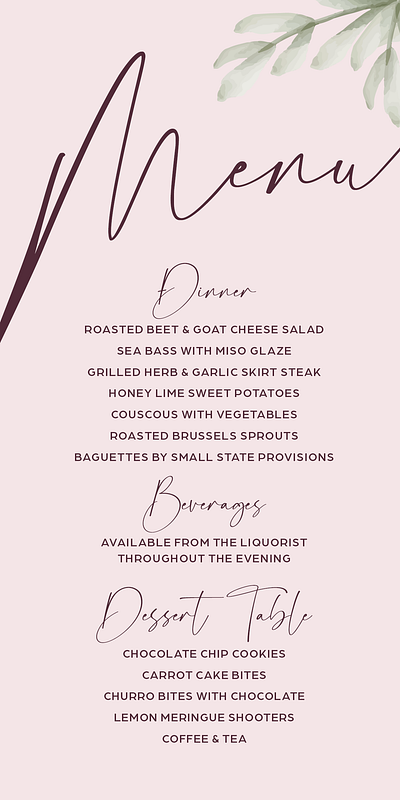 Menu
Dinner
ROASTED BEET & GOAT CHEESE SALAD
SEA BASS WITH MISO GLAZE
GRILLED HERB & GARLIC SKIRT STEAK
HONEY LIME SWEET POTATOES
COUSCOUS WITH VEGETABLES
ROASTED BRUSSELS SPROUTS
BAGUETTES BY SMALL STATE PROVISIONS
Beverages
AVAILABLE FROM THE LIQUORIST
THROUGHOUT THE EVENING
Dessert Table
CHOCOLATE CHIP COOKIES
CARROT CAKE BITES
CHURRO BITES WITH CHOCOLATE
LEMON MERINGUE SHOOTERS
COFFEE & TEA